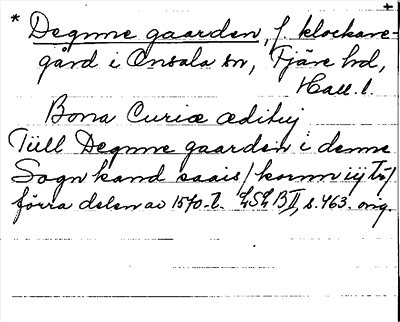 * Degnne gaarden, f. klockare-
gård i Onsala sn, Fjäre hd,
Hall. l.
Bona Curiæ æditüj
Tiill Degnne gaarden i denne
Sogn kand saais / kornn iij tr /
förra delen av 1570-t. LSLB II, s. 463. orig.
+